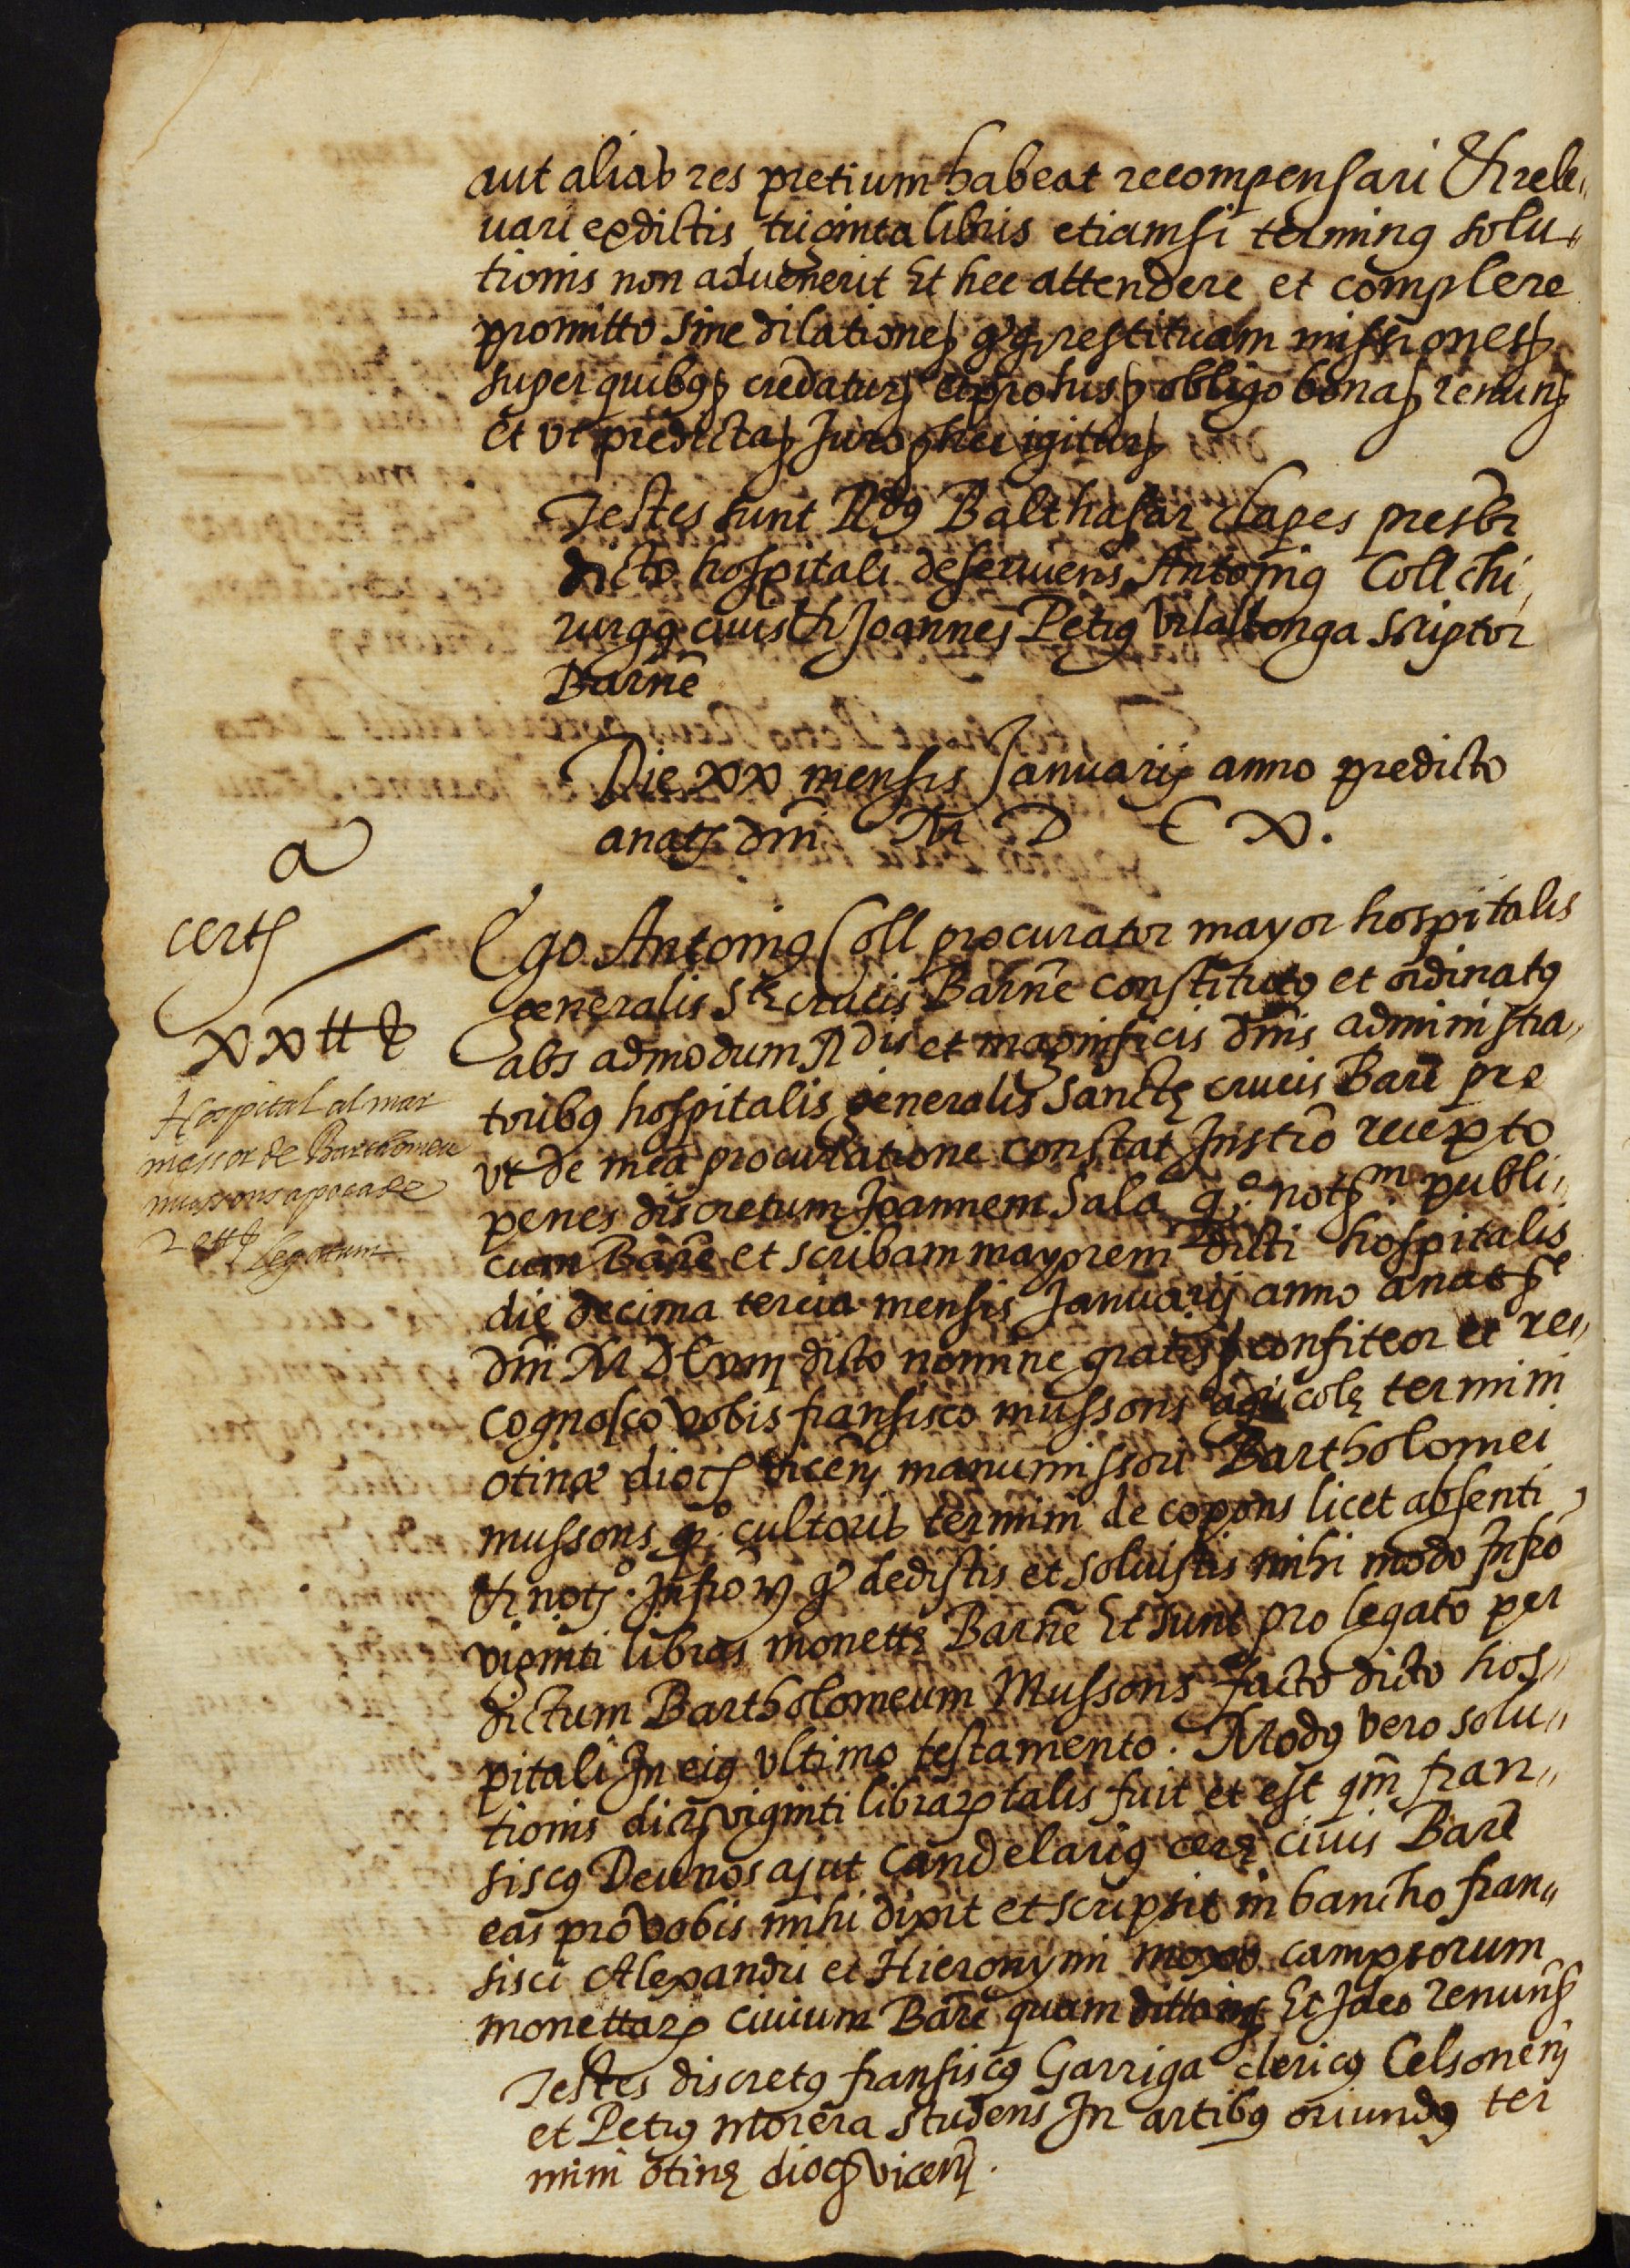 aut alias res pretium habeat recompensari et rele
uari ex dictis triginta libris etiamsi terminꝰ solu
tionis non aduenerit Et hec attendere et complere
promitto sine dilatione restituam missiones
super quibꝰ credatur et pro his obligo bona renun
et ut predicta Juro hec igitur
Testes sunt Rdꝰ Balthasar clapes presbr
dicto hospitali deseruiens Antoniꝰ Coll chi
rurgꝰ ciuis et Joannes Petrꝰ Vilallonga scriptor
Barne
Die xx mensis Januarij anno predicto
a nat dni M D C X.
a
cert
xx ℔
Hospital al mar
messor de Barthomeu
mussons apoca de
20 ℔ legatum
Ego Antoniꝰ Coll procurator mayor hospitalis
generalis Ste crucis Barne constitutꝰ et ordinatꝰ
abs admodum Rdis et magnificis dnis administra
toribꝰ hospitalis generalis Sanctę crucis Barne pre
ut de mea procuratione constat Instro recepto
penes discretum Joannem Sala qo notm publi
cum Barne et scribam mayorem dicti hospitalis
die decima tercia mensis Januarij anno a natte
dni M D C viiij dicto nomine gratis confiteor et re
cognosco vobis fransisco mussons agricolę termini
otinæ dioc vicen manumissori Bartholomei
mussons qo cultoris termini de copons licet absenti
et noto Infro dedistis et soluistis mihi modo Infro
viginti libras monettę Barne Et sunt pro legato per
dictum Bartholomeum Mussons facto dicto hos
pitali In eiꝰ ultimo testamento. Modꝰ vero solu
tionis dictꝝ viginti libraꝝ talis fuit et est qm fran
siscꝰ Deunosajut candelariꝰ cerę ciuis Barne
eas pro vobis mihi dixit et scripsit in bancho fran
sisci Alexandri et Hieronymi moxo campsorum
monettaꝝ ciuium Barne quam Et Ideo renun
Testes discretꝰ fransiscꝰ Garriga clericꝰ Celsonen
et Petrꝰ morera studens In artibꝰ oriundꝰ ter
mini otinę dioc vicen.